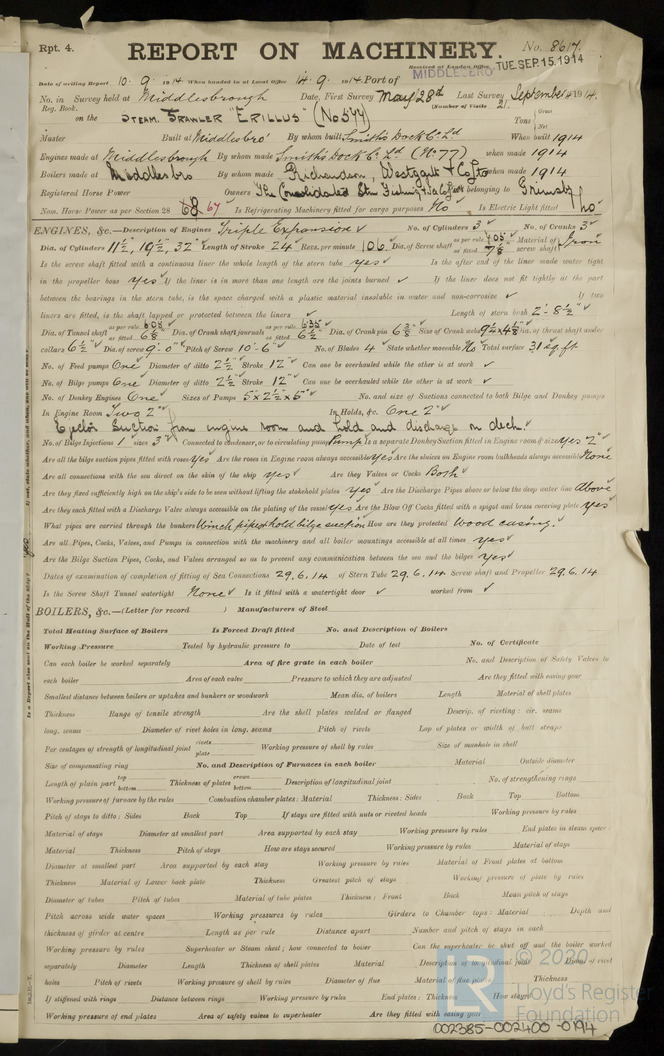 Rpt. 4.
REPORT ON MACHINERY.
No. 8617.
Received at London Office TUE. SEP. 15. 1914
MIDDLESBRO
Date of writing Report 10. 9. 1914. When handed in at Local Office 14. 9. 1914. Port of
No. in Survey held at Middlesbrough Date, First Survey May 28th Last Survey September 4 1914.
Reg. Book. (Number of Visits 21
on the STEAM. TRAWLER "ERILLUS" (No 544) Tons Gross Net
Master Built at Middlesbro' By whom built Smith's Dock Co. Ld When built 1914
Engines made at Middlesbrough By whom made Smith's Dock Co. Ld (No. 77) when made 1914
Boilers made at Middlesbro By whom made Richardson, Westgarth & Co Ltd when made 1914
Registered Horse Power Owners The Consolidated Stm Fishing & Ice Co Ltd belonging to Grimsby
Nom. Horse Power as per Section 28 68 67 Is Refrigerating Machinery fitted for cargo purposes No Is Electric Light fitted No
ENGINES, &c.—Description of Engines Triple Expansion No. of Cylinders 3 No. of Cranks 3
Dia. of Cylinders 11½", 19½", 32" Length of Stroke 24" Revs. per minute 106 Dia. of Screw shaft as per rule 7.05 as fitted 7⅛ Material of screw shaft Iron
Is the screw shaft fitted with a continuous liner the whole length of the stern tube yes Is the after end of the liner made water tight
in the propeller boss yes If the liner is in more than one length are the joints burned If the liner does not fit tightly at the part
between the bearings in the stern tube, is the space charged with a plastic material insoluble in water and non-corrosive If two
liners are fitted, is the shaft lapped or protected between the liners Length of stern bush 2'- 8½"
Dia. of Tunnel shaft as per rule 6.08 as fitted 6⅛ Dia. of Crank shaft journals as per rule 6.35 as fitted 6½ Dia. of Crank pin Size of Crank webs Dia. of thrust shaft under
collars 6½" Dia. of screw 9'- 0" Pitch of Screw 10'- 6" No. of Blades 4 State whether moveable No Total surface 31 sq. ft.
No. of Feed pumps One Diameter of ditto 2½" Stroke 12" Can one be overhauled while the other is at work
No. of Bilge pumps One Diameter of ditto 2½" Stroke 12" Can one be overhauled while the other is at work
No. of Donkey Engines One Sizes of Pumps 5" x 2½" x 5" No. and size of Suctions connected to both Bilge and Donkey pumps
In Engine Room Two 2" In Holds, &c. One 2"
Ejector Suction from engine room and hold and discharge on deck.
No. of Bilge Injections 1 sizes 3" Connected to condenser, or to circulating pump Pump Is a separate Donkey Suction fitted in Engine room & size yes 2"
Are all the bilge suction pipes fitted with roses yes Are the roses in Engine room always accessible yes Are the sluices on Engine room bulkheads always accessible None
Are all connections with the sea direct on the skin of the ship yes Are they Valves or Cocks Both
Are they fixed sufficiently high on the ship's side to be seen without lifting the stokehold plates yes Are the Discharge Pipes above or below the deep water line Above
Are they each fitted with a Discharge Valve always accessible on the plating of the vessel yes Are the Blow Off Cocks fitted with a spigot and brass covering plate yes
What pipes are carried through the bunkers Winch pipes & hold bilge suction How are they protected Wood casing.
Are all Pipes, Cocks, Valves, and Pumps in connection with the machinery and all boiler mountings accessible at all times yes
Are the Bilge Suction Pipes, Cocks, and Valves arranged so as to prevent any communication between the sea and the bilges yes
Dates of examination of completion of fitting of Sea Connections 29.6.14 of Stern Tube 29.6.14 Screw shaft and Propeller 29.6.14
Is the Screw Shaft Tunnel watertight None Is it fitted with a watertight door worked from
BOILERS, &c.—(Letter for record ) Manufacturers of Steel
Total Heating Surface of Boilers Is Forced Draft fitted No. and Description of Boilers
Working Pressure Tested by hydraulic pressure to Date of test No. of Certificate
Can each boiler be worked separately Area of fire grate in each boiler No. and Description of Safety Valves to
each boiler Area of each valve Pressure to which they are adjusted Are they fitted with easing gear
Smallest distance between boilers or uptakes and bunkers or woodwork Mean dia. of boilers Length Material of shell plates
Thickness Range of tensile strength Are the shell plates welded or flanged Descrip. of riveting: cir. seams
long. seams Diameter of rivet holes in long. seams Pitch of rivets Lap of plates or width of butt straps
Per centages of strength of longitudinal joint rivets plate Working pressure of shell by rules Size of manhole in shell
Size of compensating ring No. and Description of Furnaces in each boiler Material Outside diameter
Length of plain part top bottom Thickness of plates crown bottom Description of longitudinal joint No. of strengthening rings
Working pressure of furnace by the rules Combustion chamber plates: Material Thickness: Sides Back Top Bottom
Pitch of stays to ditto: Sides Back Top If stays are fitted with nuts or riveted heads Working pressure by rules
Material of stays Diameter at smallest part Area supported by each stay Working pressure by rules End plates in steam space:
Material Thickness Pitch of stays How are stays secured Working pressure by rules Material of stays
Diameter at smallest part Area supported by each stay Working pressure by rules Material of Front plates at bottom
Thickness Material of Lower back plate Thickness Greatest pitch of stays Working pressure of plate by rules
Diameter of tubes Pitch of tubes Material of tube plates Thickness: Front Back Mean pitch of stays
Pitch across wide water spaces Working pressures by rules Girders to Chamber tops: Material Depth and
thickness of girder at centre Length as per rule Distance apart Number and pitch of stays in each
Working pressure by rules Superheater or Steam chest; how connected to boiler Can the superheater be shut off and the boiler worked
separately Diameter Length Thickness of shell plates Material Description of longitudinal joint Diam. of rivet
holes Pitch of rivets Working pressure of shell by rules Diameter of flue Material of flue plates Thickness
If stiffened with rings Distance between rings Working pressure by rules End plates: Thickness How stayed
Working pressure of end plates Area of safety valves to superheater Are they fitted with easing gear
© 2020
Lloyd's Register
Foundation
002385-002400-0194